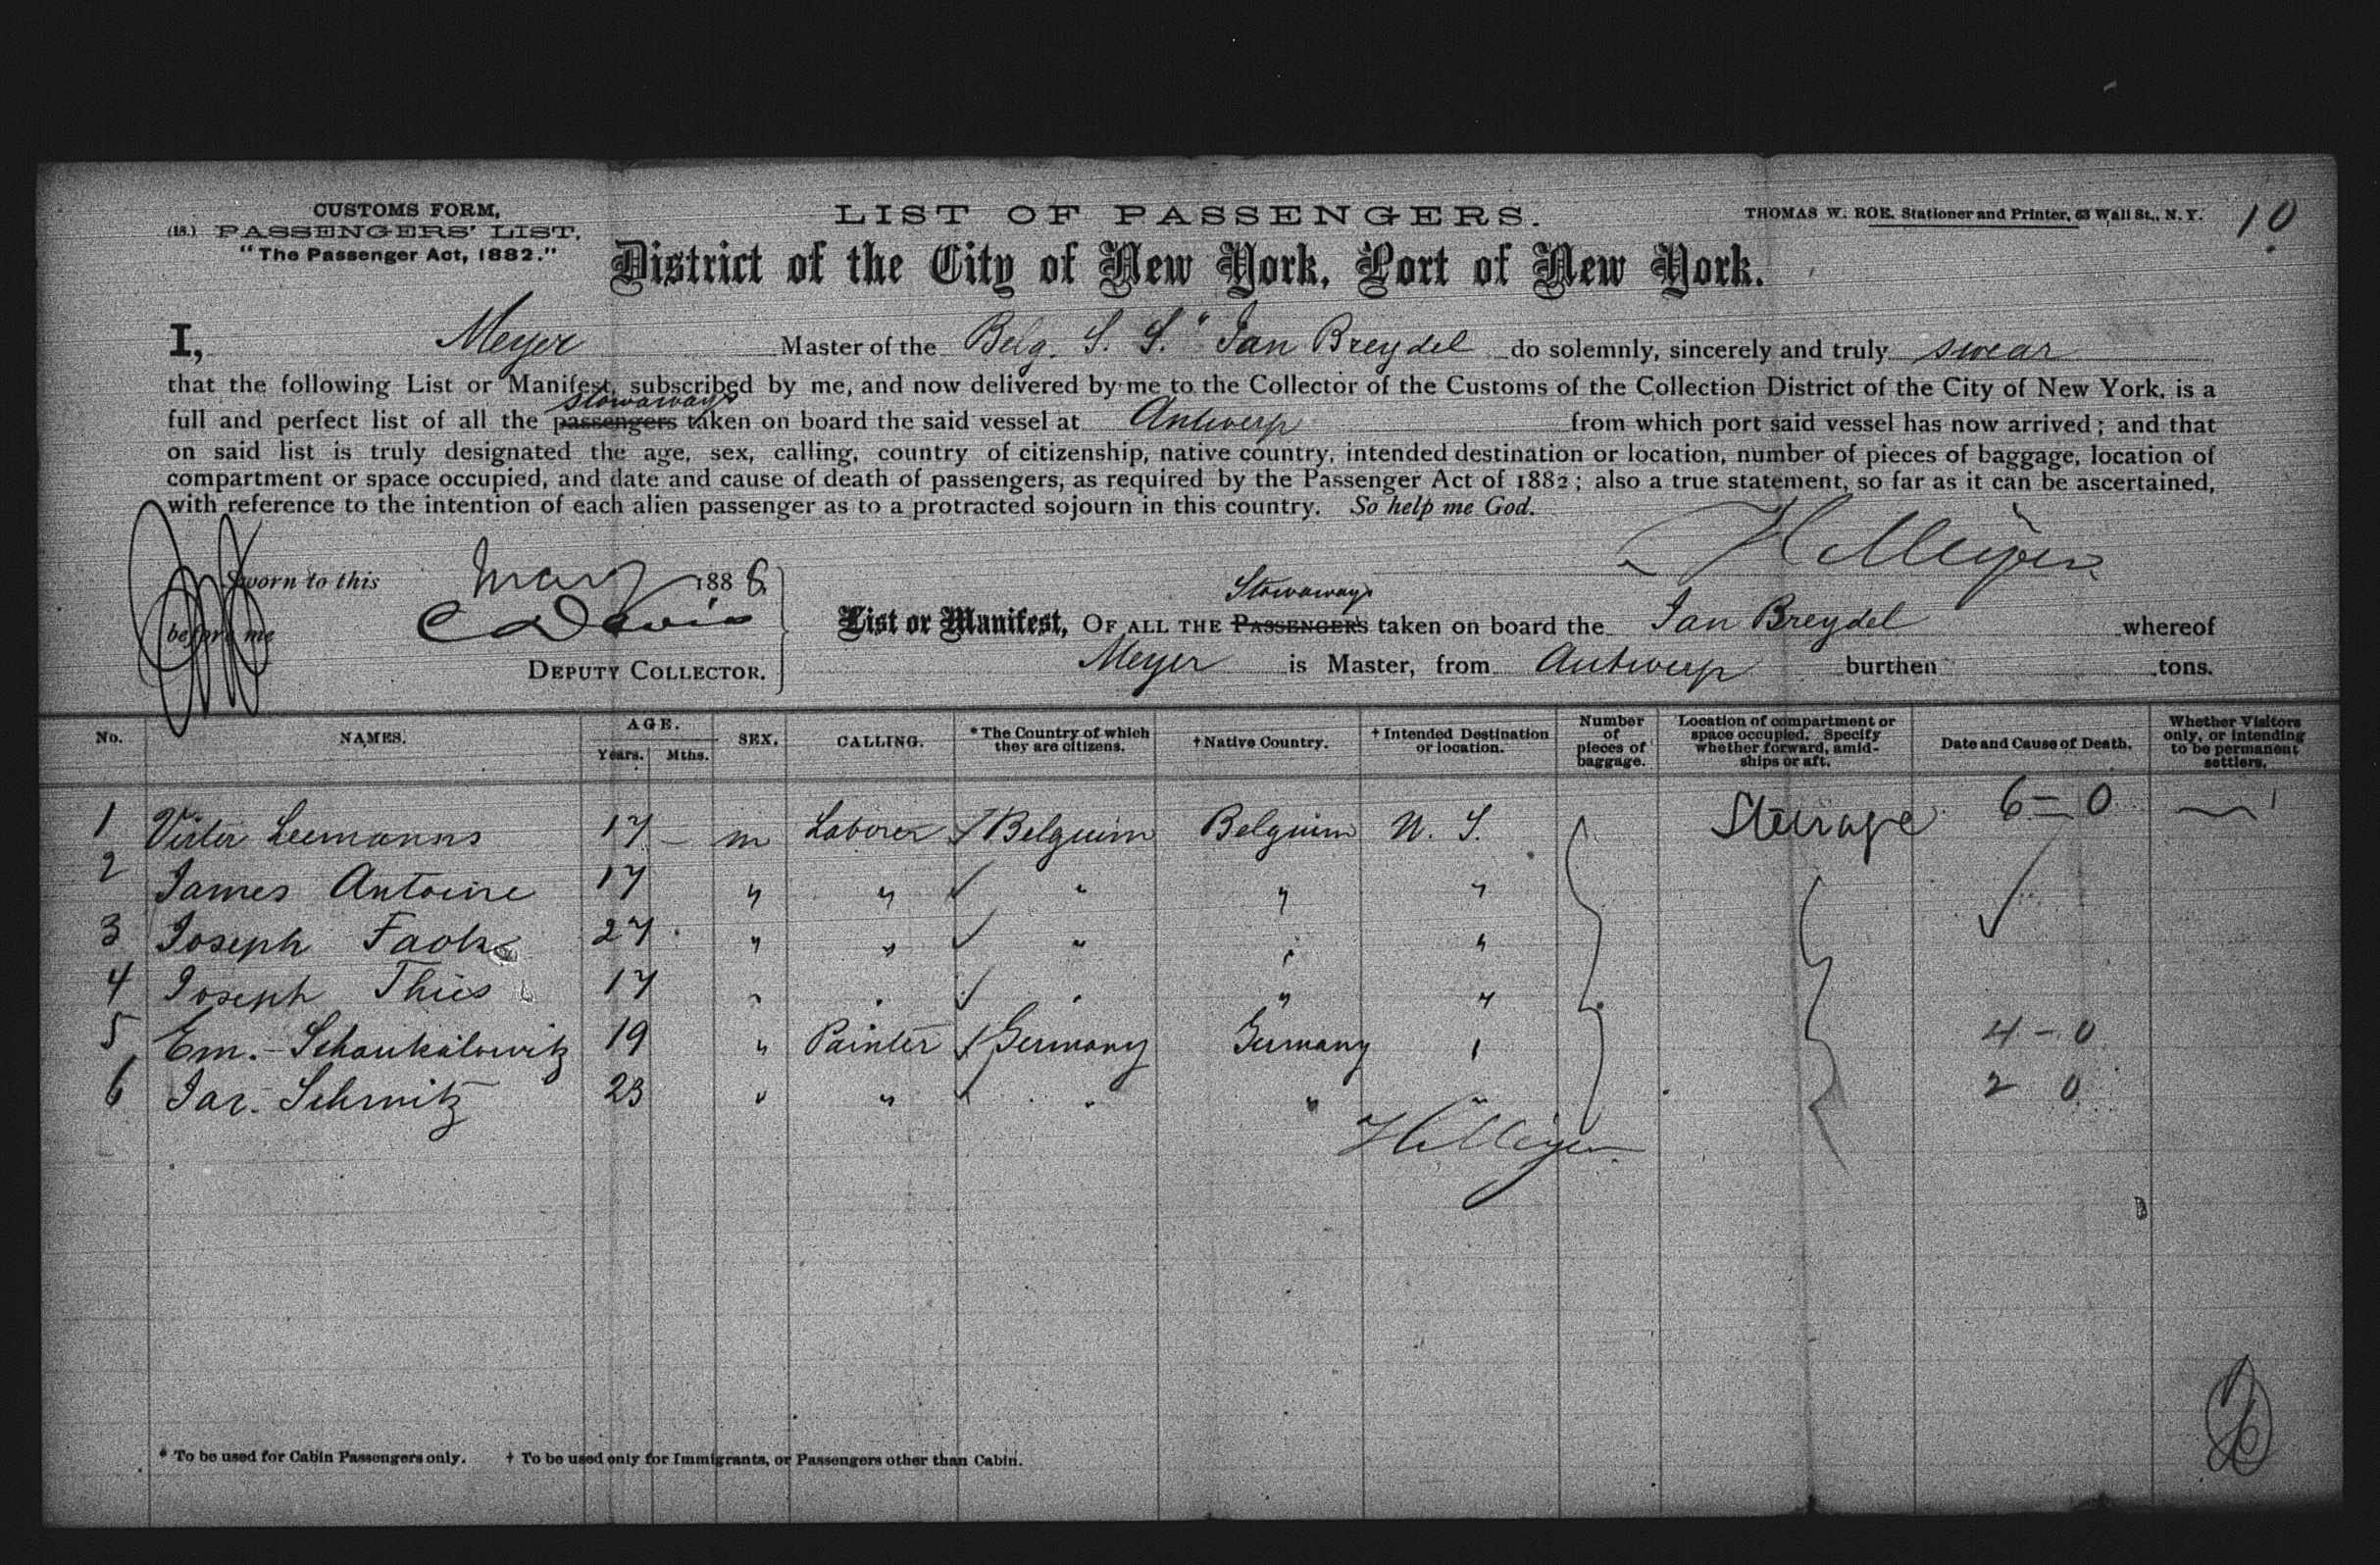 CUSTOMS FORM,
(18.) PASSENGERS' LIST,
"The Passenger Act, 1882."
LIST OF PASSENGERS.
THOMAS W. ROE. Stationer and Printer, 63 Wall St., N. Y.
10
District of the City of New York, Port of New York.
I, Meyer Master of the Belg. S. S. "Jan Breydel do solemnly, sincerely and truly swear
that the following List or Manifest, subscribed by me, and now delivered by me to the Collector of the Customs of the Collection District of the City of New York, is a
stowaways
full and perfect list of all the passengers taken on board the said vessel at Antwerp from which port said vessel has now arrived; and that
on said list is truly designated the age, sex, calling, country of citizenship, native country, intended destination or location, number of pieces of baggage, location of
compartment or space occupied, and date and cause of death of passengers, as required by the Passenger Act of 1882; also a true statement, so far as it can be ascertained,
with reference to the intention of each alien passenger as to a protracted sojourn in this country. So help me God.
H Meyer
Sworn to this May 1888
before me C Davis
DEPUTY COLLECTOR.
Stowaways
List or Manifest, OF ALL THE PASSENGERS taken on board the Jan Breydel whereof
Meyer is Master, from Antwerp burthen tons.
No. NAMES. AGE. Years. Mths. SEX. CALLING. *The Country of which they are citizens. †Native Country. †Intended Destination or location. Number of pieces of baggage. Location of compartment or space occupied. Specify whether forward, amidships or aft. Date and Cause of Death. Whether Visitors only, or intending to be permanent settlers.
1 Victor Leemanns 17 — m Laborer ✓ Belguim Belguim U. S. Steirage 6 = 0
2 James Antoine 17 " " ✓ " " "
3 Joseph 27 " " ✓ " " "
4 Joseph Thies 17 " " ✓ " " "
5 Em. Schoukalowitz 19 " Painter ✓ Germany Germany " 4 - 0
6 Jac. Schmitz 23 " " ✓ " " " 2 0
H Meyer
* To be used for Cabin Passengers only. † To be used only for Immigrants, or Passengers other than Cabin.